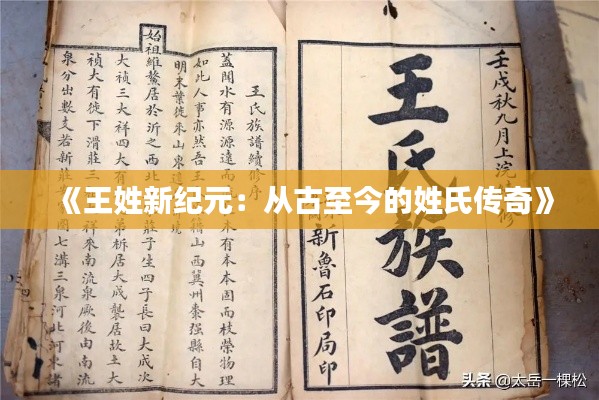 壬戌秋九月上浣 修
王氏族譜
新魯石印局印
王氏族譜續修序
蓋聞水有源源遠而 木有本本固而枝榮物理
如此人事亦然吾王 稽山西冀州棗强縣自大
明末葉徙來山東
始祖維鰲居於沂之西北 莊子生四子長曰大成次
大禎三大祥四大有 弟析居大成襲居故土大
禎大有徙下滑莊三 祥來南流泉厥後由南流
泉分出數支若新莊 國七溝三泉河北河東諸
《王姓新纪元：从古至今的姓氏传奇》
头条 @太岳一棵松